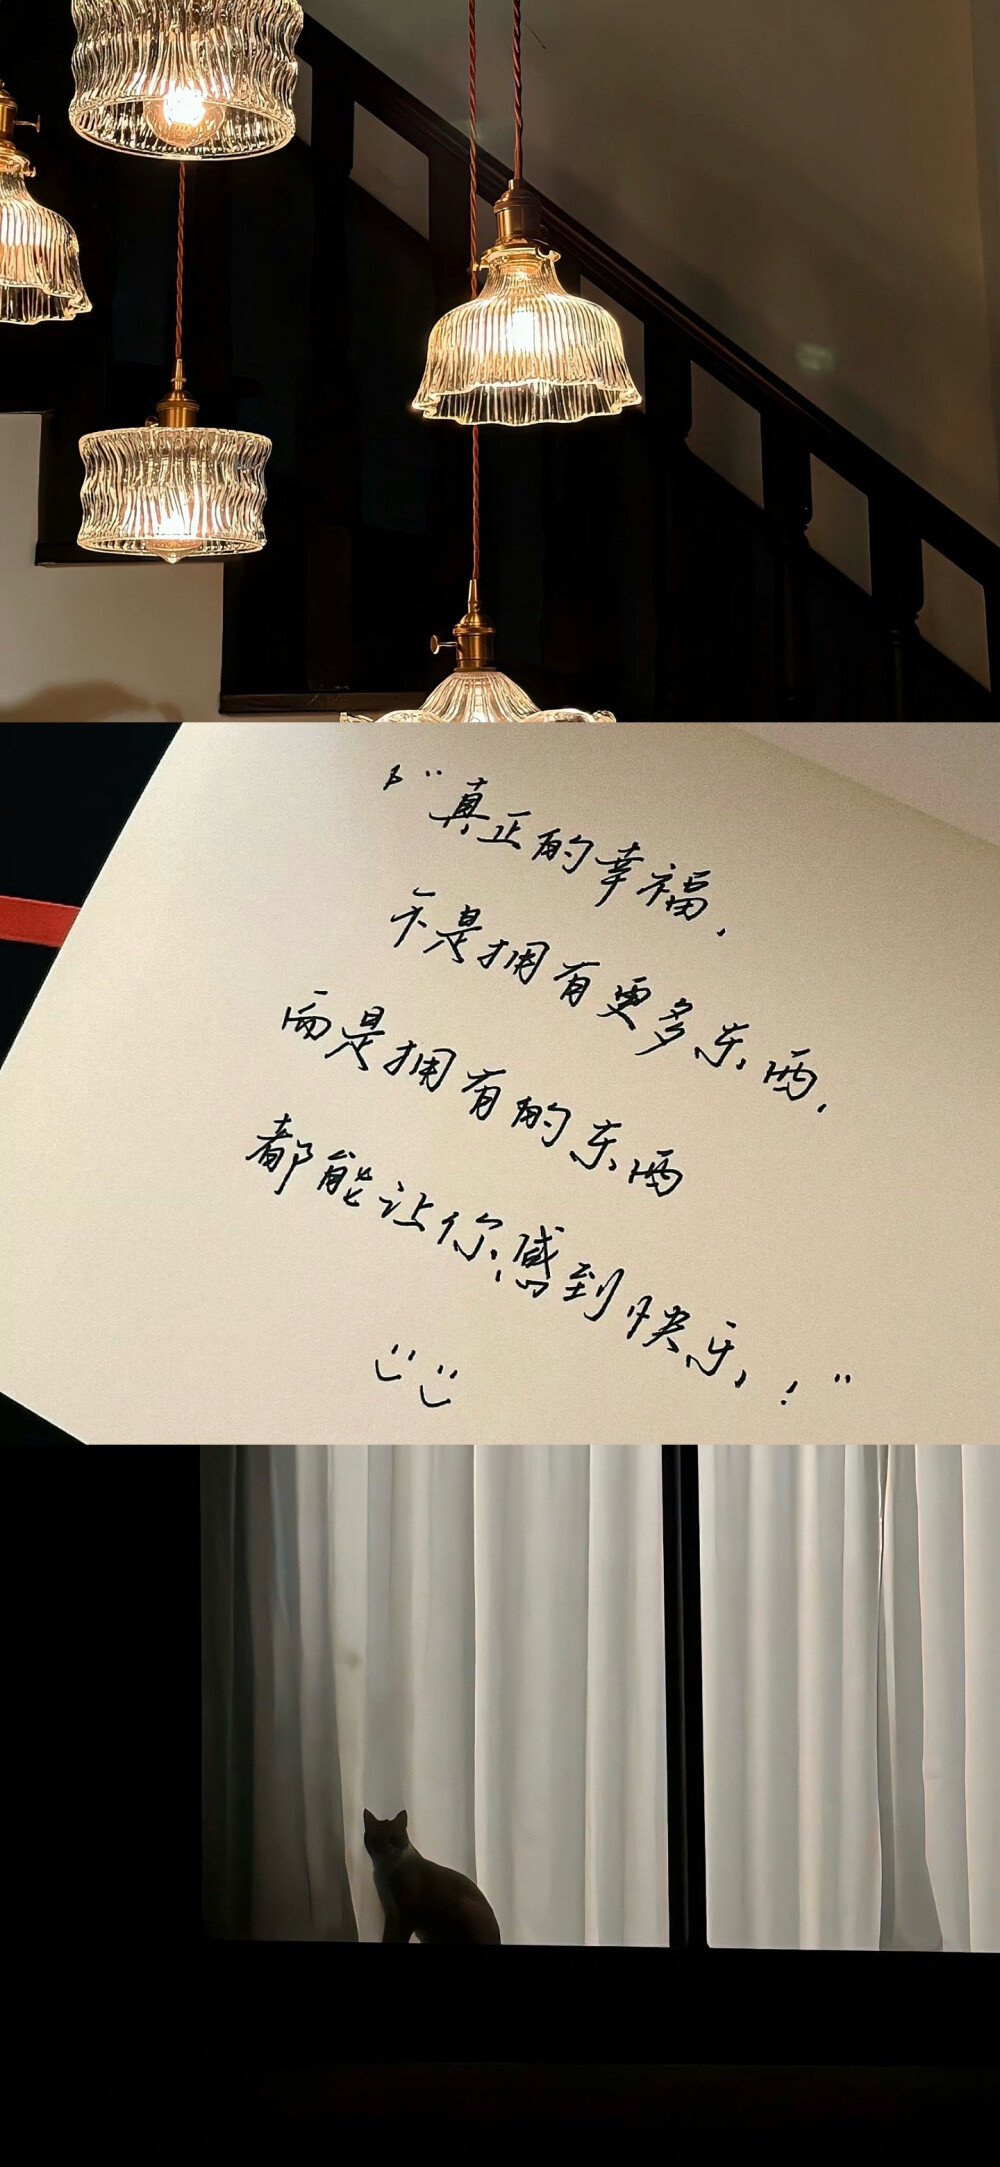 "真正的幸福，
不是拥有更多东西，
而是拥有的东西
都能让你感到快乐！"